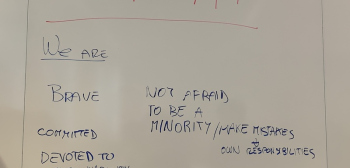 WE ARE
BRAVE
NOT AFRAID
TO BE A
MINORITY/MAKE MISTAKES
OWN RESPONSIBILITIES
COMMITTED
DEVOTED TO